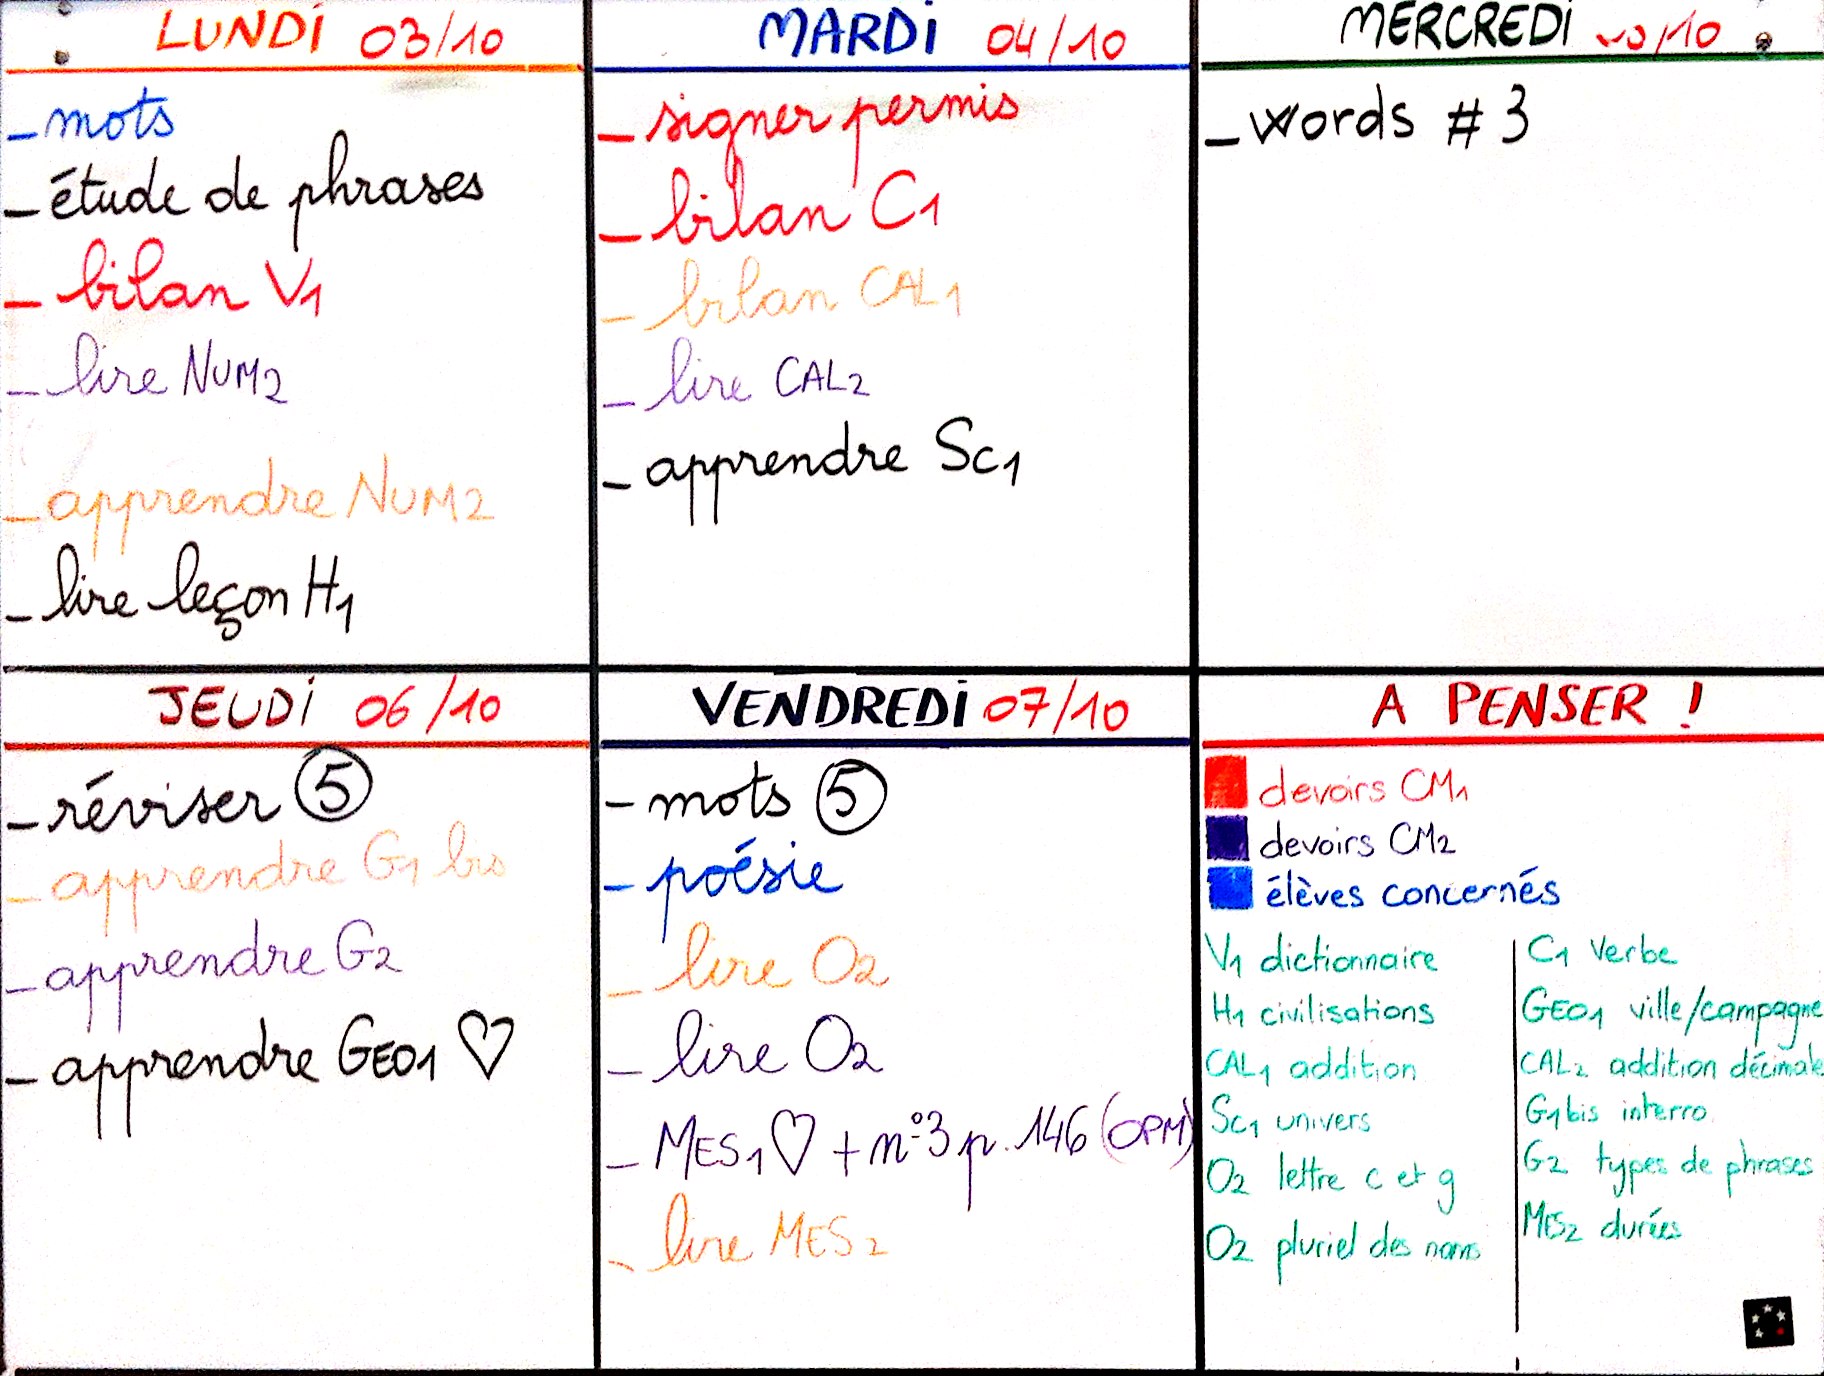 LUNDI 03/10
- mots
- étude de phrases
- bilan V1
- lire NUM2
- apprendre NUM2
- lire leçon H1
MARDI 04/10
- signer permis
- bilan C1
- bilan CAL1
- lire CAL2
- apprendre Sc1
MERCREDI /10
- words # 3
JEUDI 06/10
- réviser ⑤
- apprendre G1 bis
- apprendre G2
- apprendre GEO1 ♡
VENDREDI 07/10
- mots ⑤
- poésie
- lire O2
- lire O2
- MES1 ♡ + n°3 p. 146 (OPM)
- lire MES2
A PENSER !
devoirs CM1
devoirs CM2
élèves concernés
V1 dictionnaire
H1 civilisations
CAL1 addition
Sc1 univers
O2 lettre c et g
O2 pluriel des noms
C1 Verbe
GEO1 ville/campagne
CAL2 addition décimale
G1bis interro
G2 types de phrases
MES2 durées